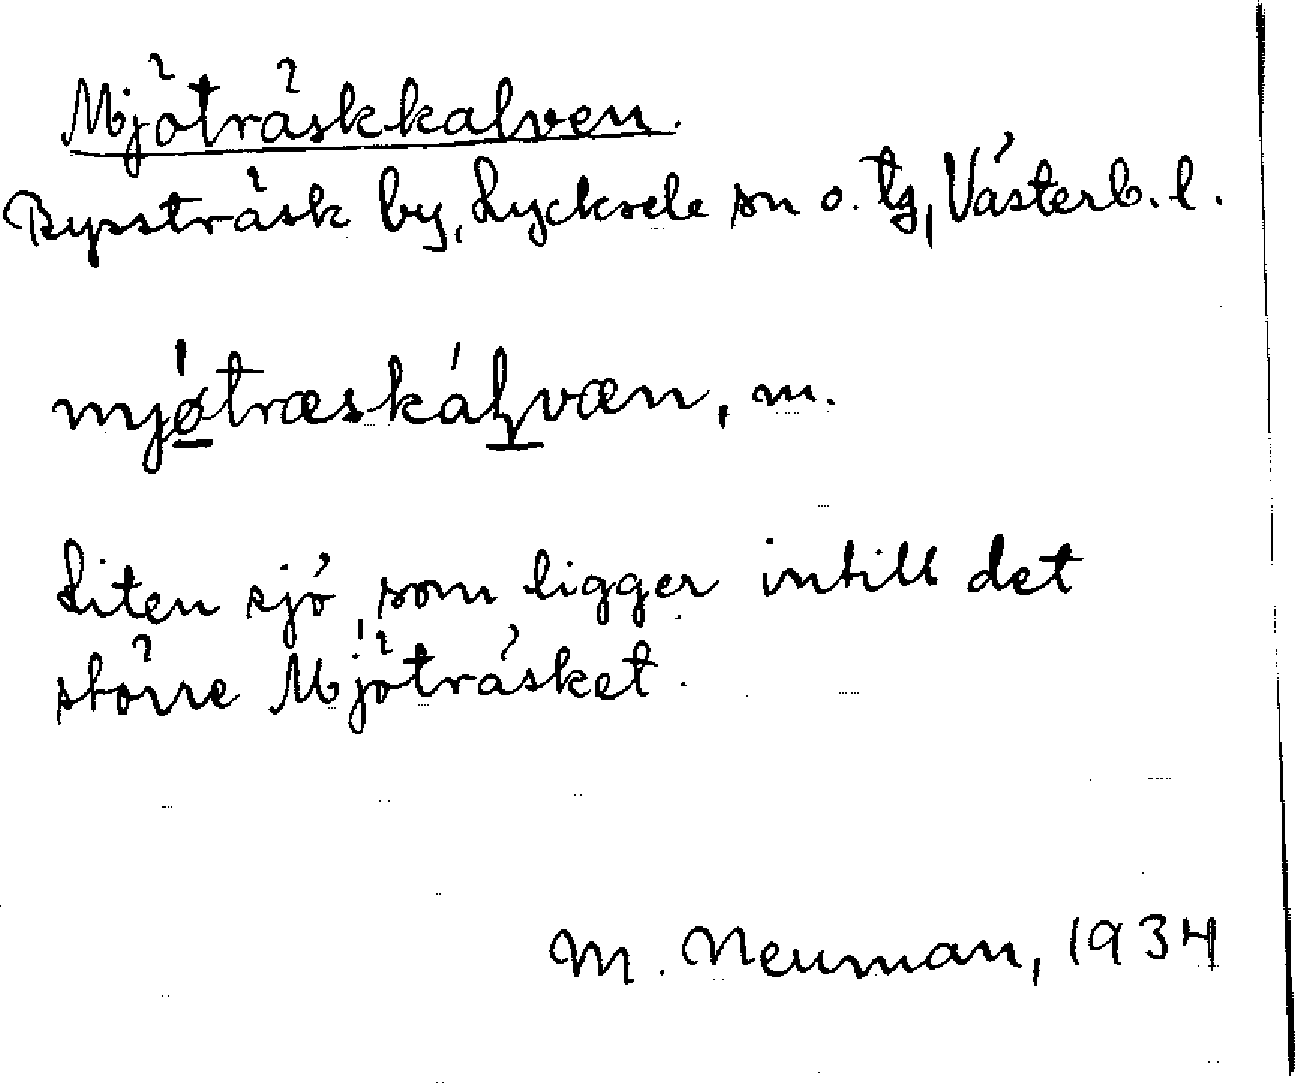 Mjöträskkalven.
Bysträsk by, Lycksele sn o. tg, Västerb. l.
mjø̱træskálvæn, m.
Liten sjö, som ligger intill det
större Mjöträsket.
M. Neuman, 1934